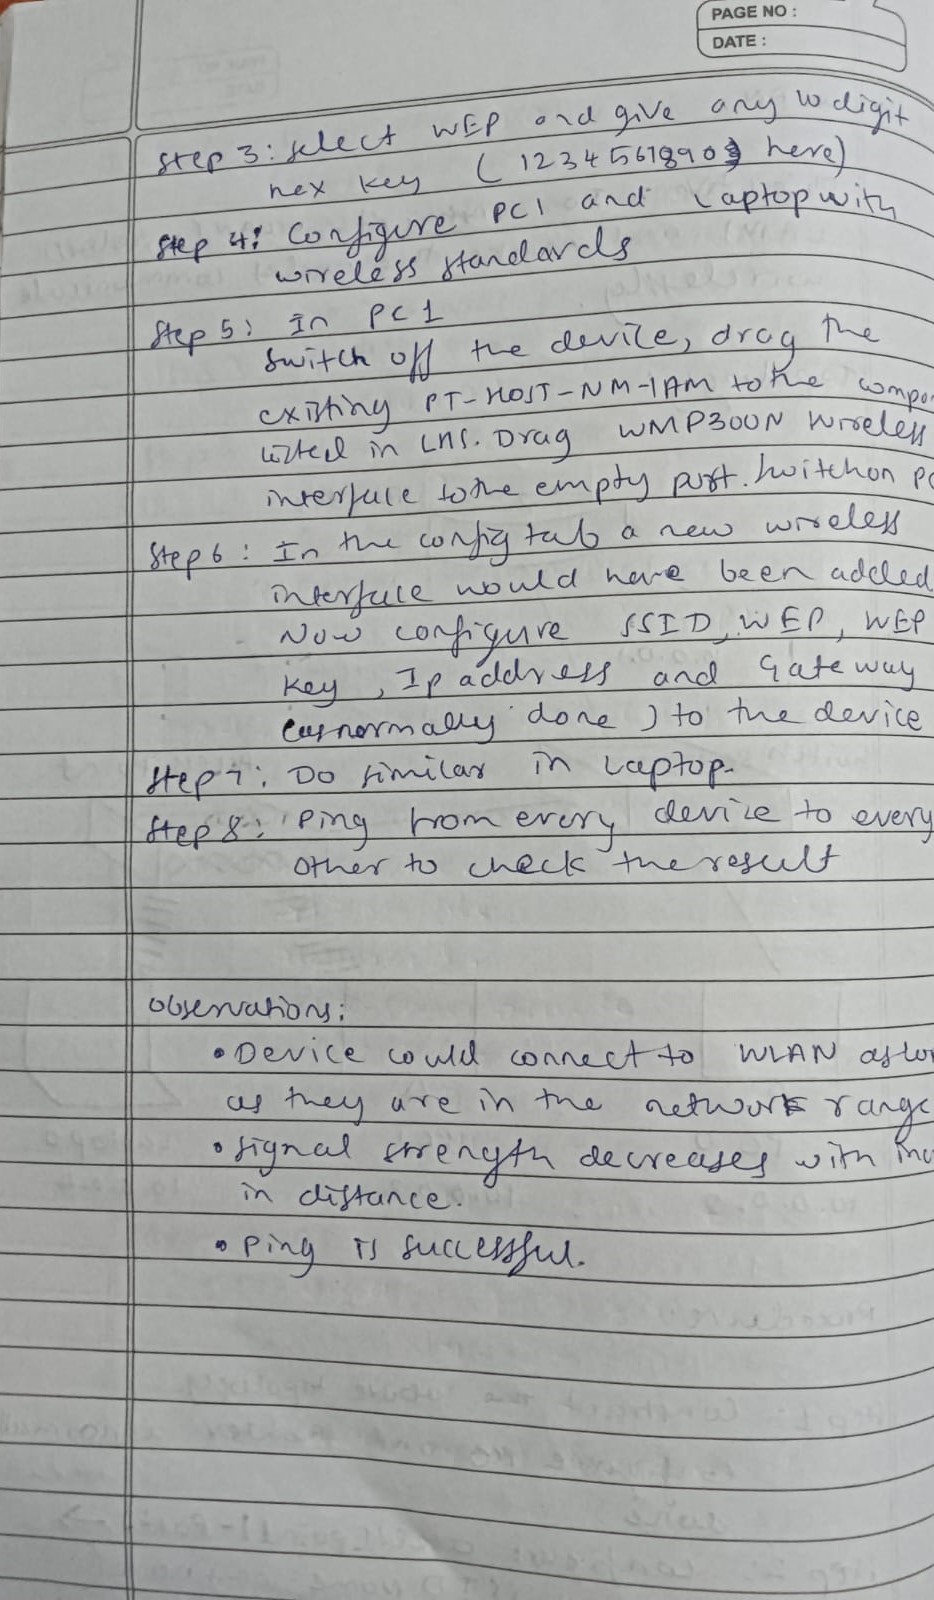 PAGE NO :
DATE :
Step 3: Select WEP and give any 10 digit
hex key ( 1234567890 here)
Step 4: Configure PC1 and Laptop with
wireless standards
Step 5: In PC1
Switch off the device, drag the
existing PT-HOST-NM-1AM to the compo
listed in LHS. Drag WMP300N wireless
interface to the empty port. Switch on PC
Step 6: In the config tab a new wireless
interface would have been added
Now configure SSID, WEP, WEP
key, Ip address and Gateway
(as normally done) to the device
Step 7: Do similar in Laptop.
Step 8: Ping from every device to every
other to check the result
Observations:
• Device could connect to WLAN as lon
as they are in the network range
• Signal strength decreases with inc
in distance.
• Ping is successful.